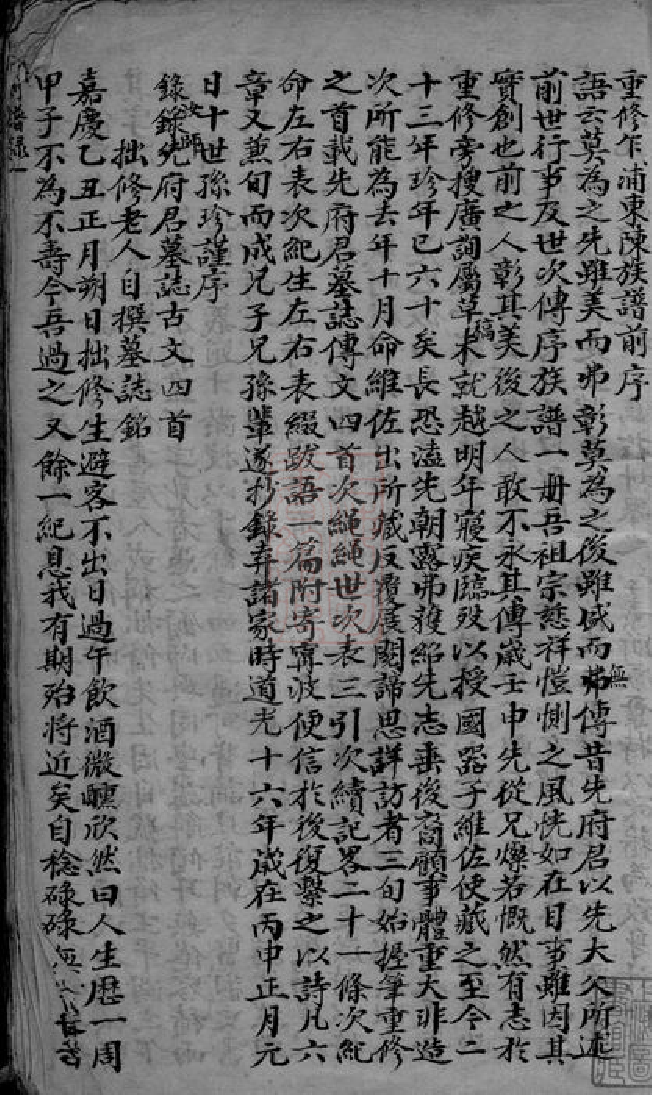 重修乍浦東陳族譜前序
語云莫為之先雖美而弗彰莫為之後雖盛而弗無傳昔先府君以先大父所述
前世行事及世次傳序族譜一冊吾祖宗慈祥愷惻之風恍如在目事雖因其
實創也前之人彰其美後之人敢不永其傳歲壬申先從兄燦若慨然有志於
重修旁搜廣詢屬草稿未就越明年寢疾臨歿以授國器子維佐使藏之至今二
十三年珍年已六十矣長恐溘先朝露弗獲紹先志垂後裔顧事體重大非造
次所能為去年十月命維佐出所藏反覆展閱諦思詳訪者三旬始握筆重修
之首載先府君墓誌傳文四首次繩繩世次表三引次續記畧二十一條次紀
命左右表次紀生左右表綴跋語一篇附寄甯波便信於後復繫之以詩凡六
章又兼旬而成兄子兄孫輩遂抄錄弆諸家時道光十六年歲在丙申正月元
日十世孫珍謹序
錄先府君墓誌古文四首
拙修老人自撰墓誌銘
嘉慶乙丑正月朔日拙修生避客不出日過午飲酒微醺欣然曰人生歷一周
甲子不為不壽今吾過之又餘一紀息我有期殆將近矣自稔碌碌無